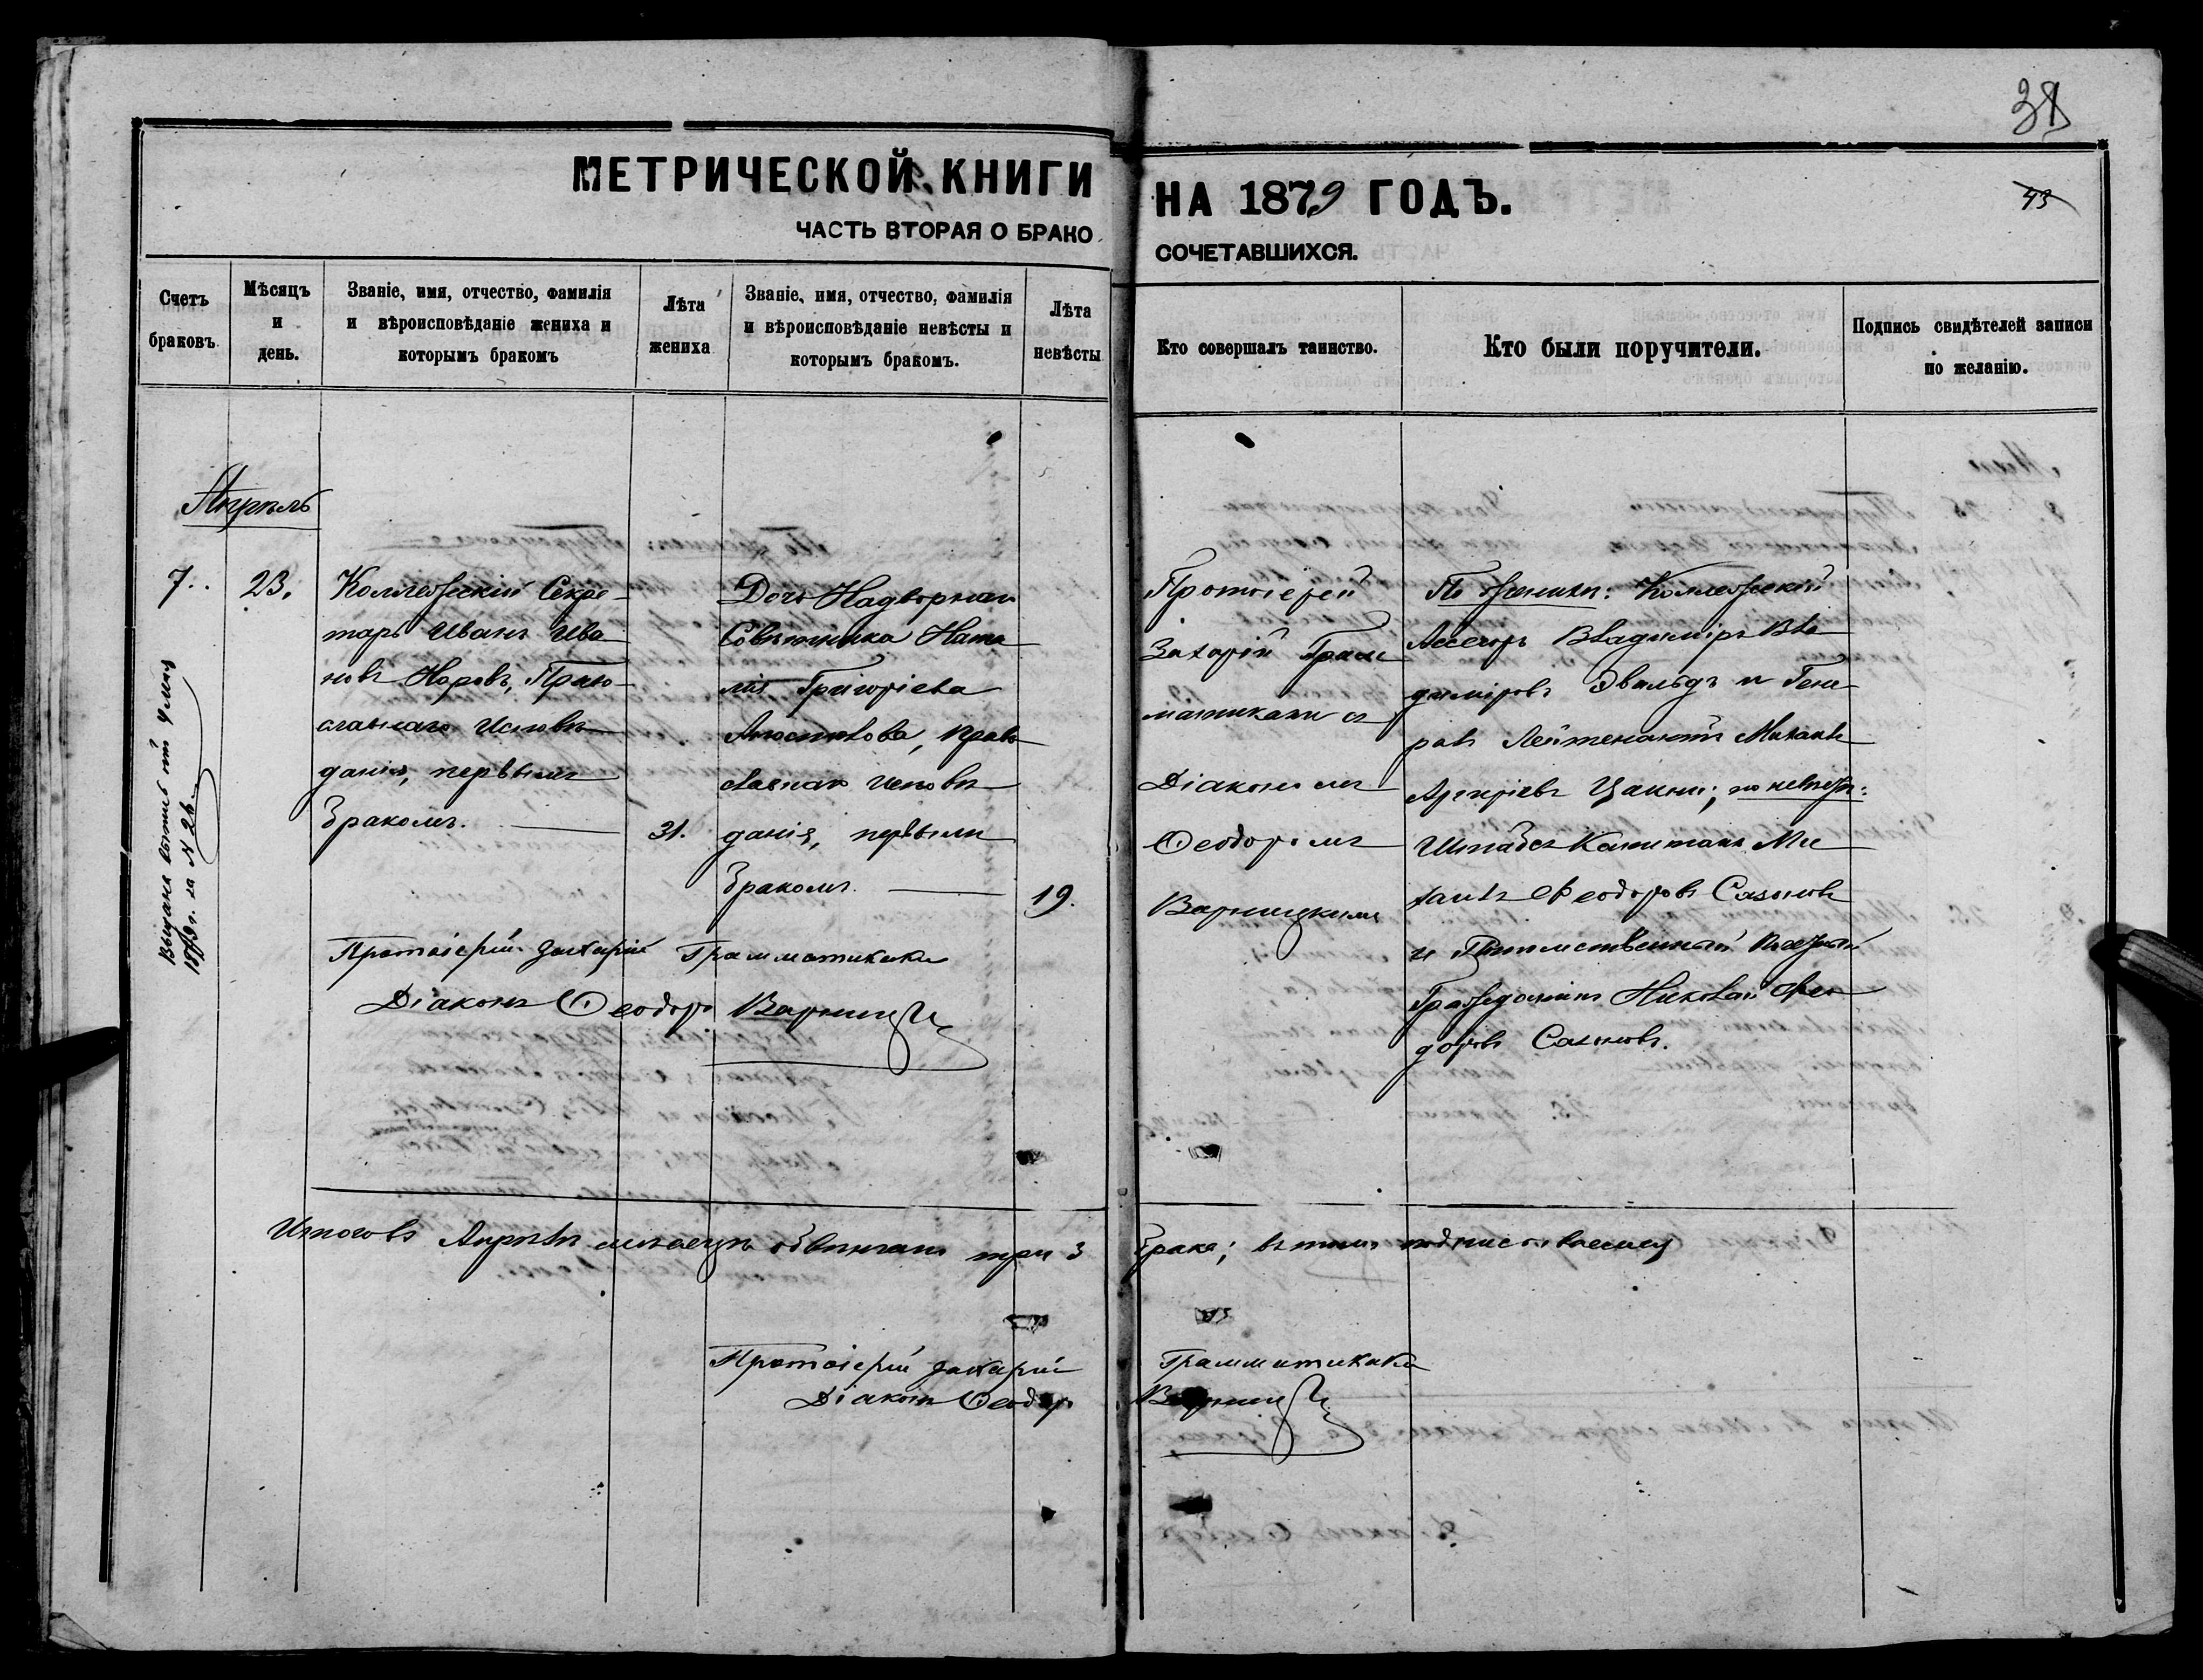 38
43
МЕТРИЧЕСКОЙ КНИГИ НА 1879 ГОДЪ.
ЧАСТЬ ВТОРАЯ О БРАКОСОЧЕТАВШИХСЯ.
Счетъ браковъ.
Мѣсяцъ и день.
Званіе, имя, отчество, фамилія
и вѣроисповѣданіе жениха и
которымъ бракомъ
Лѣта жениха
Званіе, имя, отчество, фамилія
и вѣроисповѣданіе невѣсты и
которымъ бракомъ.
Лѣта невѣсты
Кто совершалъ таинство.
Кто были поручители.
Подпись свидѣтелей записи
по желанію.
Апрѣль
7.
23.
Коллежскій Секре-
тарь Иванъ Ива
новъ Норовъ, Право
славнаго Исповѣ
данія, первымъ
бракомъ.
31.
Дочь Надворнаго
Совѣтника Ната
лія Григоріева
Апостолова, право
славнаго исповѣ
данія, первымъ
бракомъ.
19.
Протоіерей
Захарій Грам
матикаки съ
Діакономъ
Ѳеодоромъ
Варницкимъ
По женихѣ: Коллежскій
Ассесоръ Владиміръ Вла
диміровъ Эвальдъ и Гене
ралъ Лейтенантъ Михаилъ
Аргиріевъ Цакни; по невѣстѣ:
Штабсъ Капитанъ Ми
хаилъ Ѳеодоровъ Сазоновъ
и Потомственный Почетный
Гражданинъ Николай Ѳео
доровъ Сазоновъ.
Протоіерей Захарій Грамматикаки
Діаконъ Ѳеодоръ Варницкій
Итого въ Апрѣлѣ мѣсяцѣ обвѣнчано три 3 брака; въ томъ подписываемся
Протоіерей Захарій Грамматикаки
Діаконъ Ѳеодоръ Варницкій
Выдана 1879 г. за № 26